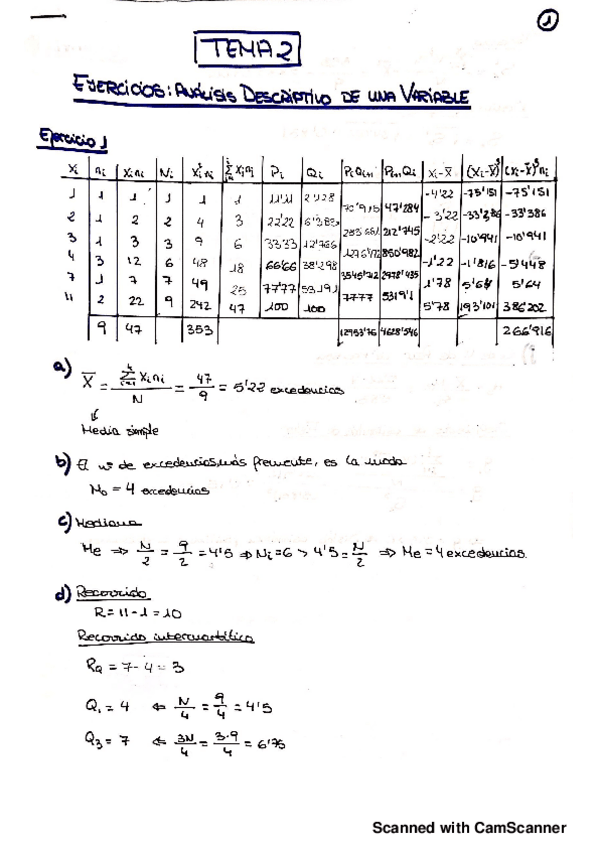 1
TEMA 2
EJERCICIOS: ANÁLISIS DESCRIPTIVO DE UNA VARIABLE
Ejercicio 1
xi ni xini Ni xi²ni Σxini Pi Qi PiQi+1 Pi+1Qi xi-x̄ (xi-x̄)³ (xi-x̄)³ni
1 1 1 1 1 1 11'11 2'128 -4'22 -75'151 -75'151
70'915 47'284
2 1 2 2 4 3 22'22 6'383 -3'22 -33'386 -33'386
283'661 212'745
3 1 3 3 9 6 33'33 12'766 -2'22 -10'941 -10'941
850'982
4 3 12 6 48 18 66'66 38'298 -1'22 -1'816 -5'448
3545'712 2978'435
7 1 7 7 49 25 77'77 53'191 1'78 5'64 5'64
7777 5319'1
11 2 22 9 242 47 100 100 5'78 193'101 386'202
9 47 353 12953'76 266'916
a) X̄ = Σxini / N = 47/9 = 5'22 excedencias
Media simple
b) El nº de excedencias más frecuente, es la moda
Mo = 4 excedencias
c) Mediana
Me ⇒ N/2 = 9/2 = 4'5 ⇒ Ni = 6 > 4'5 = N/2 ⇒ Me = 4 excedencias
d) Recorrido
R = 11 - 1 = 10
Recorrido intercuartílico
RQ = 7 - 4 = 3
Q1 = 4 ⇐ N/4 = 9/4 = 4'5
Q3 = 7 ⇐ 3N/4 = 3·9/4 = 6'75
Scanned with CamScanner